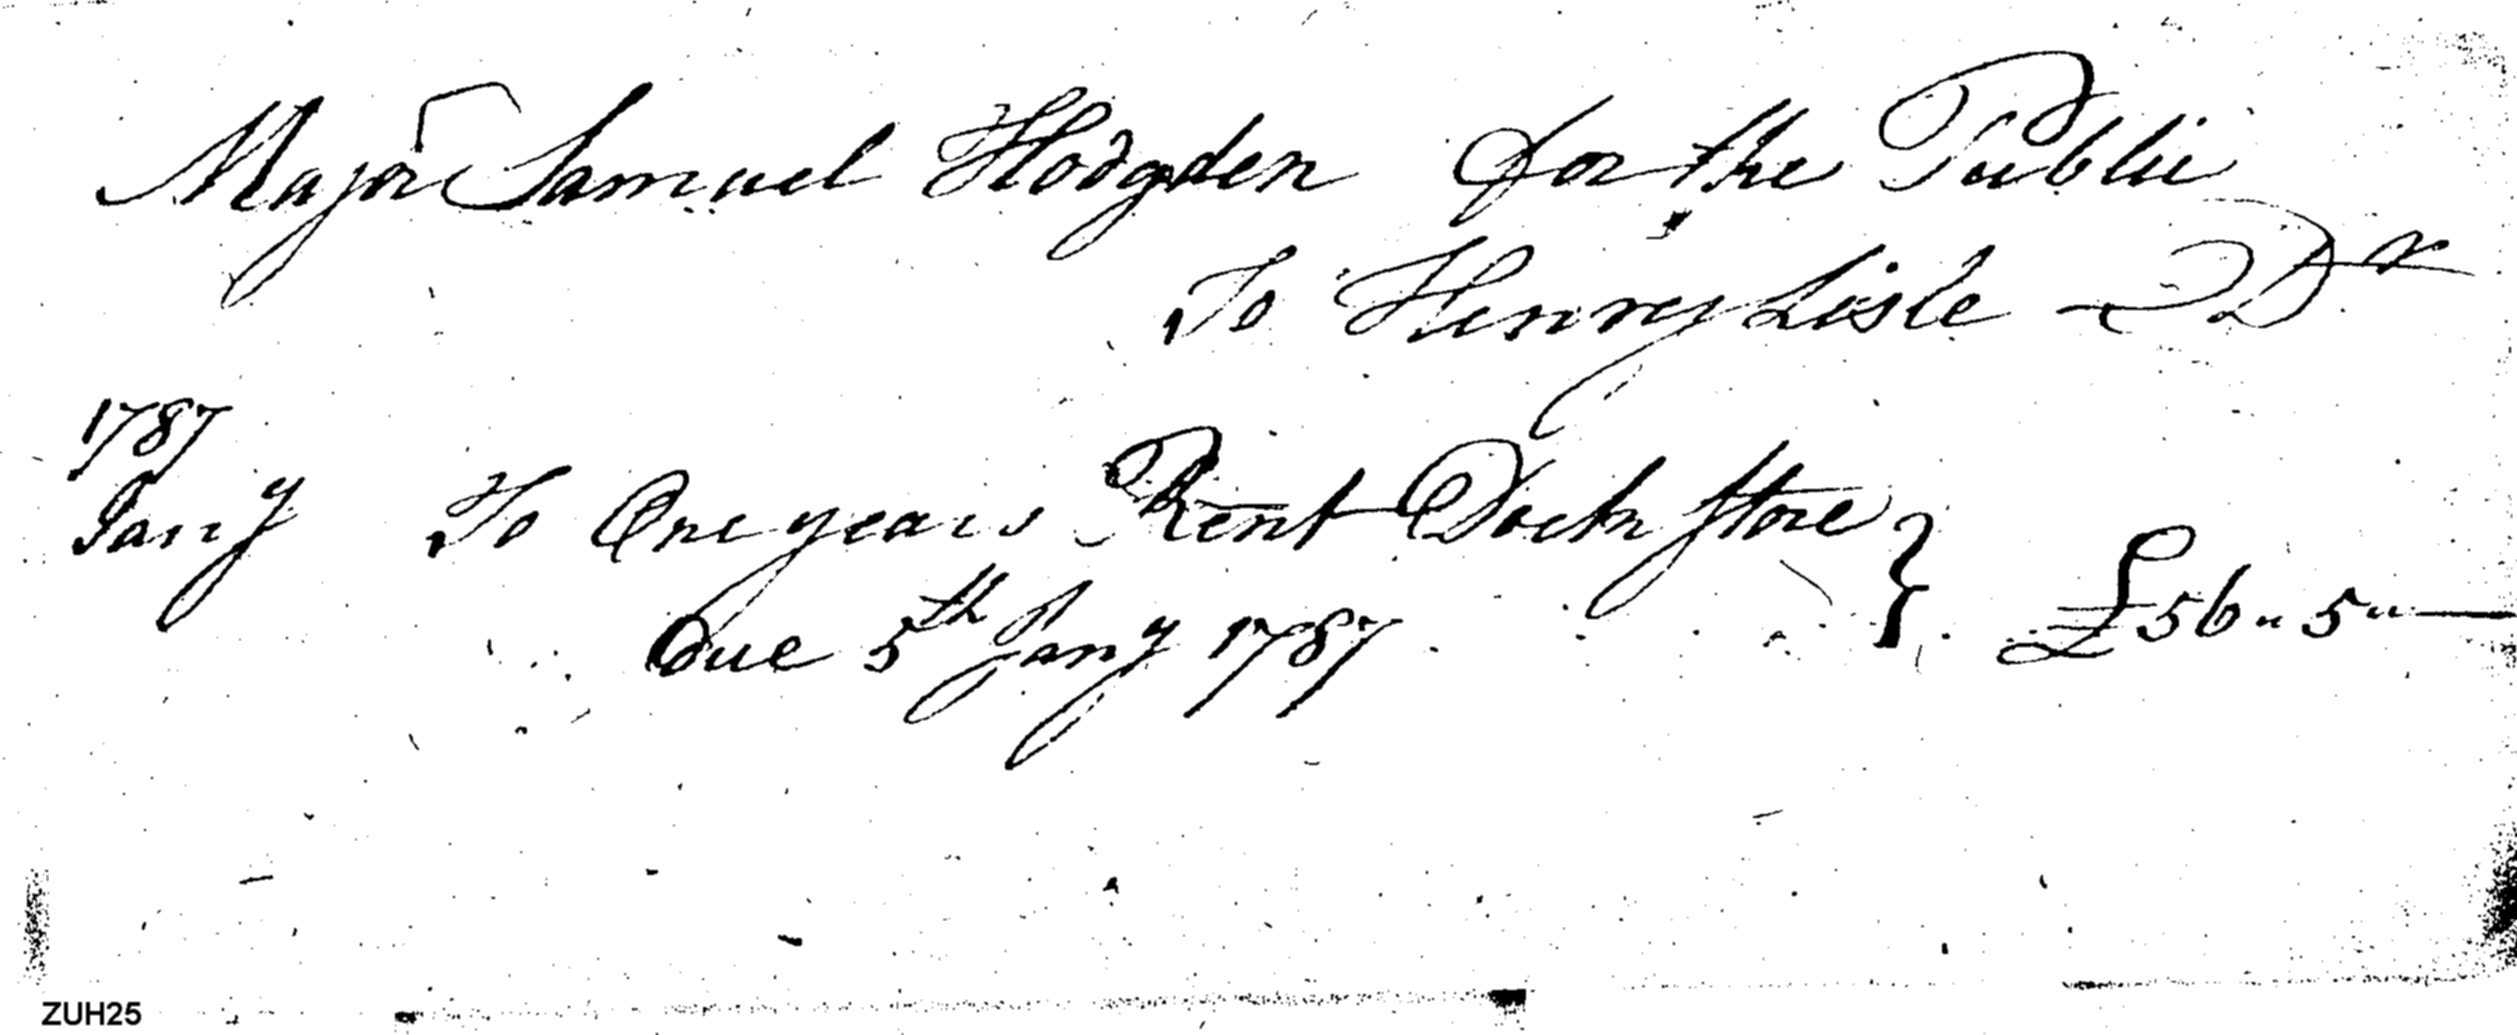 Major Samuel Hodgden for the Public
To Henry Lisle Dr
1787
Jany To One years Rent Dock Store
Due 5th Jany 1787 £56"5"—
ZUH25